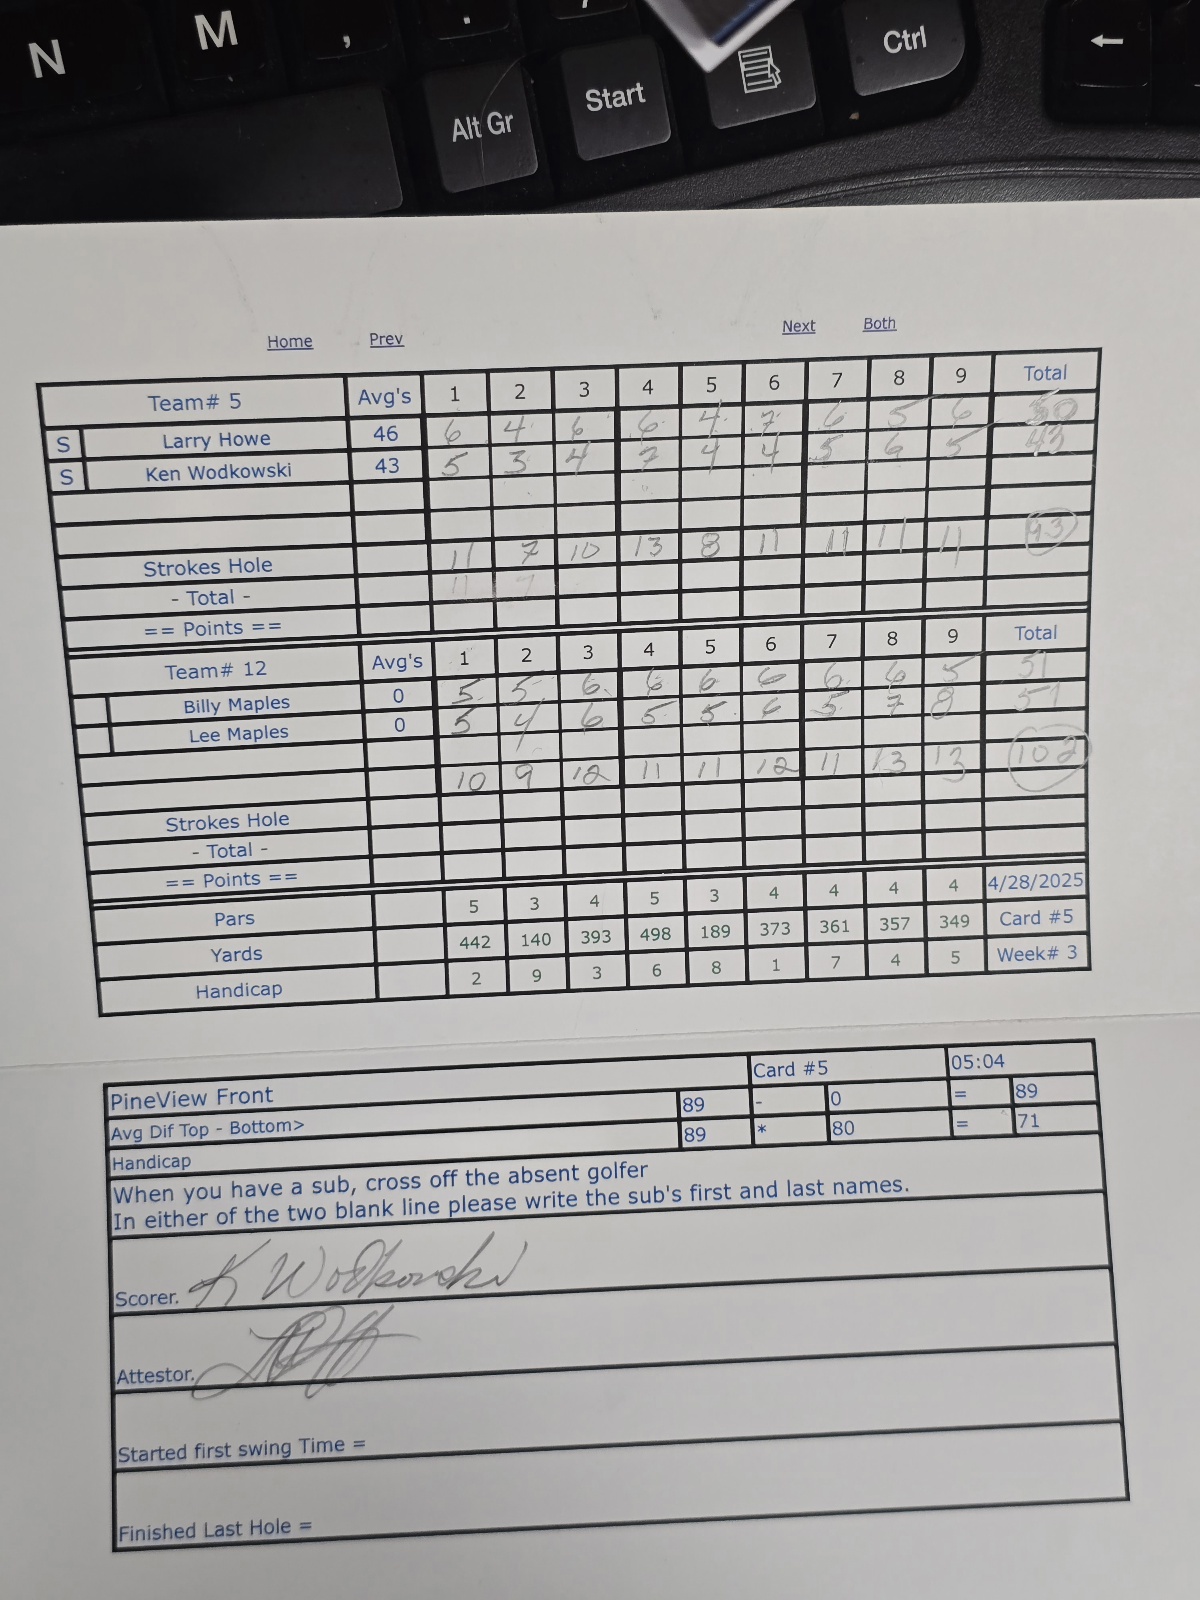 N M , .
Alt Gr Start Ctrl ←
Home Prev Next Both
Team# 5 Avg's 1 2 3 4 5 6 7 8 9 Total
S Larry Howe 46 6 4 6 6 4 7 6 5 6 50
S Ken Wodkowski 43 5 3 4 7 4 4 5 6 5 43
Strokes Hole 11 7 10 13 8 11 11 11 11 93
- Total - 11 7
== Points ==
Team# 12 Avg's 1 2 3 4 5 6 7 8 9 Total
Billy Maples 0 5 5 6 6 6 6 6 6 5 51
Lee Maples 0 5 4 6 5 5 6 5 7 8 51
10 9 12 11 11 12 11 13 13 102
Strokes Hole
- Total -
== Points ==
Pars 5 3 4 5 3 4 4 4 4 4/28/2025
Yards 442 140 393 498 189 373 361 357 349 Card #5
Handicap 2 9 3 6 8 1 7 4 5 Week# 3
PineView Front Card #5 05:04
Avg Dif Top - Bottom> 89 - 0 = 89
Handicap 89 * 80 = 71
When you have a sub, cross off the absent golfer
In either of the two blank line please write the sub's first and last names.
Scorer. K Wodkowski
Attestor.
Started first swing Time =
Finished Last Hole =